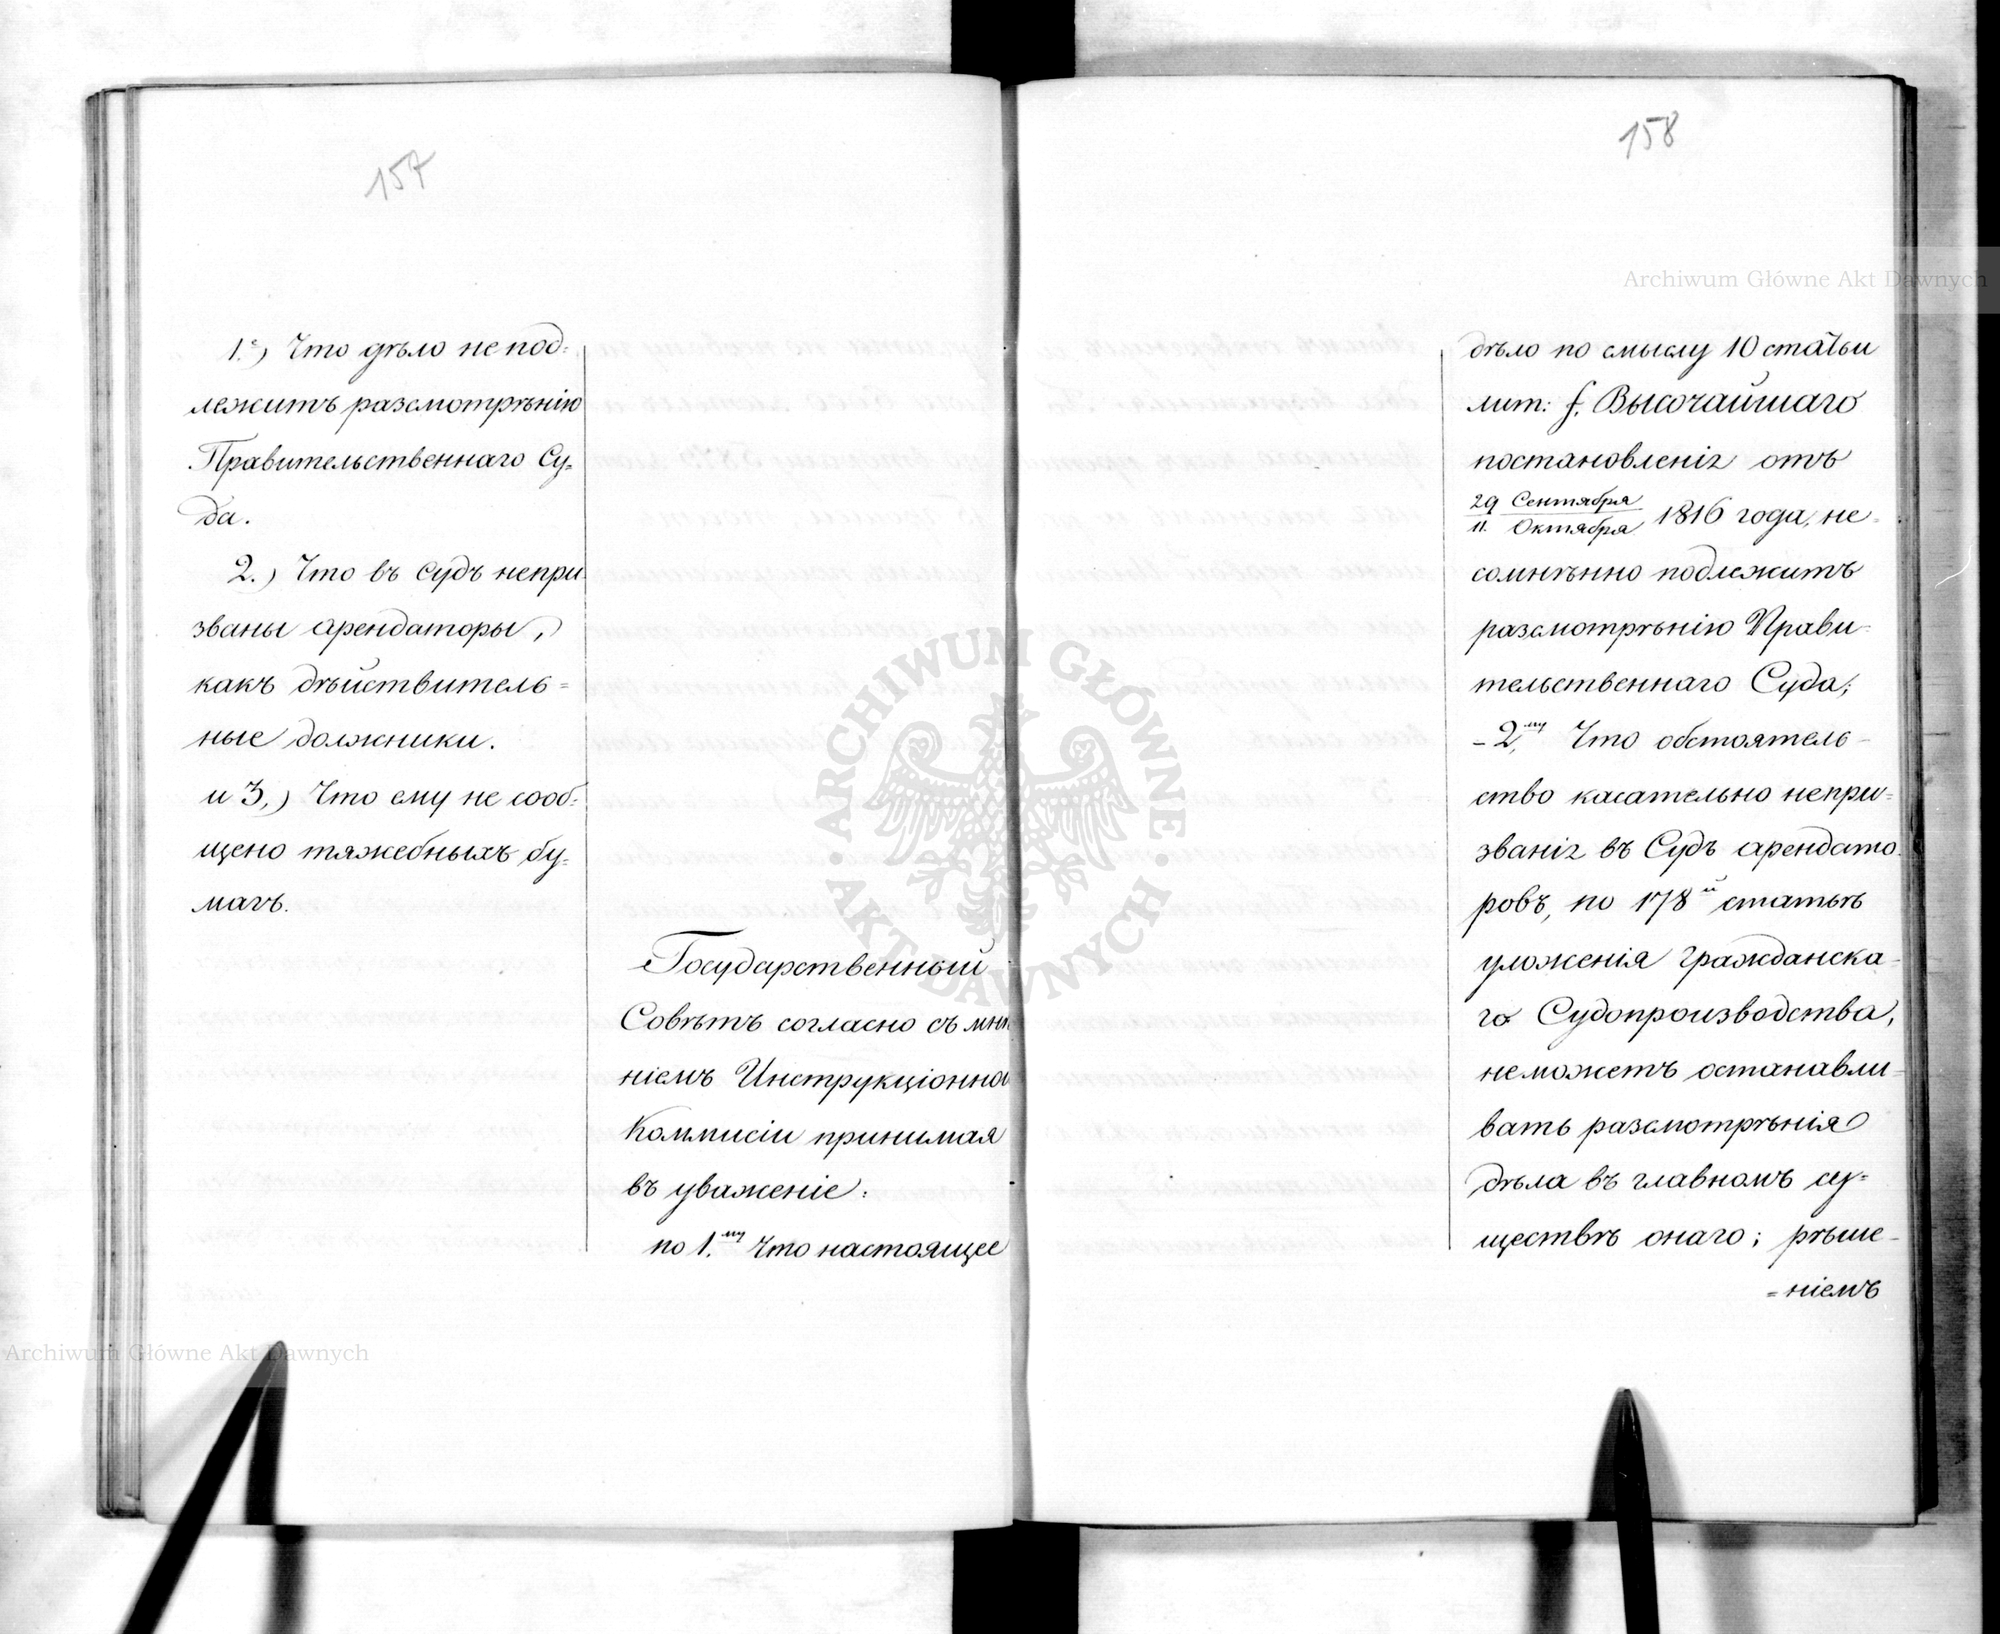 157
1.е) Что дѣло не под-
лежитъ разсмотрѣнію
Правительственнаго Су-
да.
2.) Что въ Судъ непри-
званы арендаторы,
какъ дѣйствитель=
ные должники.
и 3,) Что ему не сооб-
щено тяжебныхъ бу-
магъ.
Государственный
Совѣтъ согласно съ мнѣ
ніемъ Инструкціонной
Коммисіи принимая
въ уваженіе:
по 1.му Что настоящее
158
дѣло по смыслу 10 статьи
лит: f. Высочайшаго
постановленія отъ
29 Сентября
11. Октября 1816 года, не-
сомнѣнно подлежитъ
разсмотрѣнію Прави-
тельственнаго Суда;
– 2.му Что обстоятель-
ство касательно непри-
званія въ Судъ арендато-
ровъ, по 178й статьѣ
уложенія Гражданска-
го Судопроизводства,
неможетъ останавли-
вать разсмотрѣнія
дѣла въ главномъ су-
ществѣ онаго; рѣше-
=ніемъ
Archiwum Główne Akt Dawnych
ARCHIWUM GŁÓWNE · AKT DAWNYCH ·
Archiwum Główne Akt Dawnych